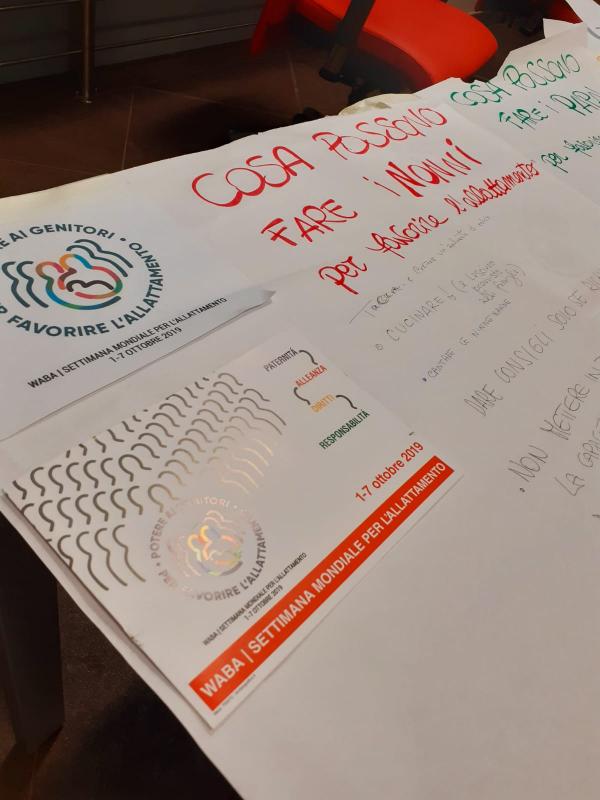 COSA POSSONO
FARE i NONNI
per favorire l'allattamento
COSA POSSONO
FARE i
per
CUCINARE!
DARE CONSIGLI SOLO SE
NON METTERE IN
LA
POTERE AI GENITORI • PER FAVORIRE L'ALLATTAMENTO
WABA | SETTIMANA MONDIALE PER L'ALLATTAMENTO
1-7 OTTOBRE 2019
PATERNITÀ
ALLEANZA
DIRITTI
RESPONSABILITÀ
• POTERE AI GENITORI • PER FAVORIRE L'ALLATTAMENTO
WABA | SETTIMANA MONDIALE PER L'ALLATTAMENTO
1-7 OTTOBRE 2019
1-7 ottobre 2019
WABA | SETTIMANA MONDIALE PER L'ALLATTAMENTO